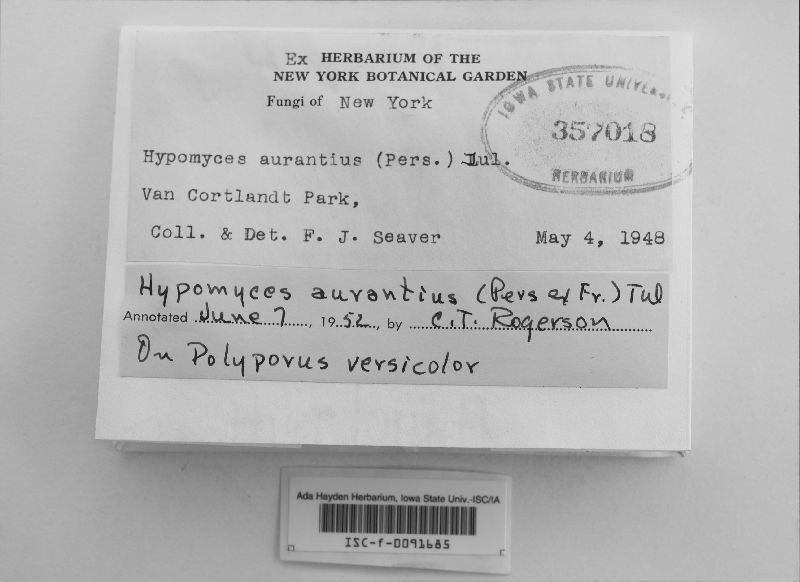 Ex HERBARIUM OF THE
NEW YORK BOTANICAL GARDEN
Fungi of New York
IOWA STATE UNIVERSITY
357018
HERBARIUM
Hypomyces aurantius (Pers.) Tul.
Van Cortlandt Park,
Coll. & Det. F. J. Seaver May 4, 1948
Hypomyces aurantius (Pers ex Fr.) Tul
Annotated June 7, 1952, by C.T. Rogerson
On Polyporus versicolor
Ada Hayden Herbarium, Iowa State Univ.-ISC/IA
ISC-f-0091685